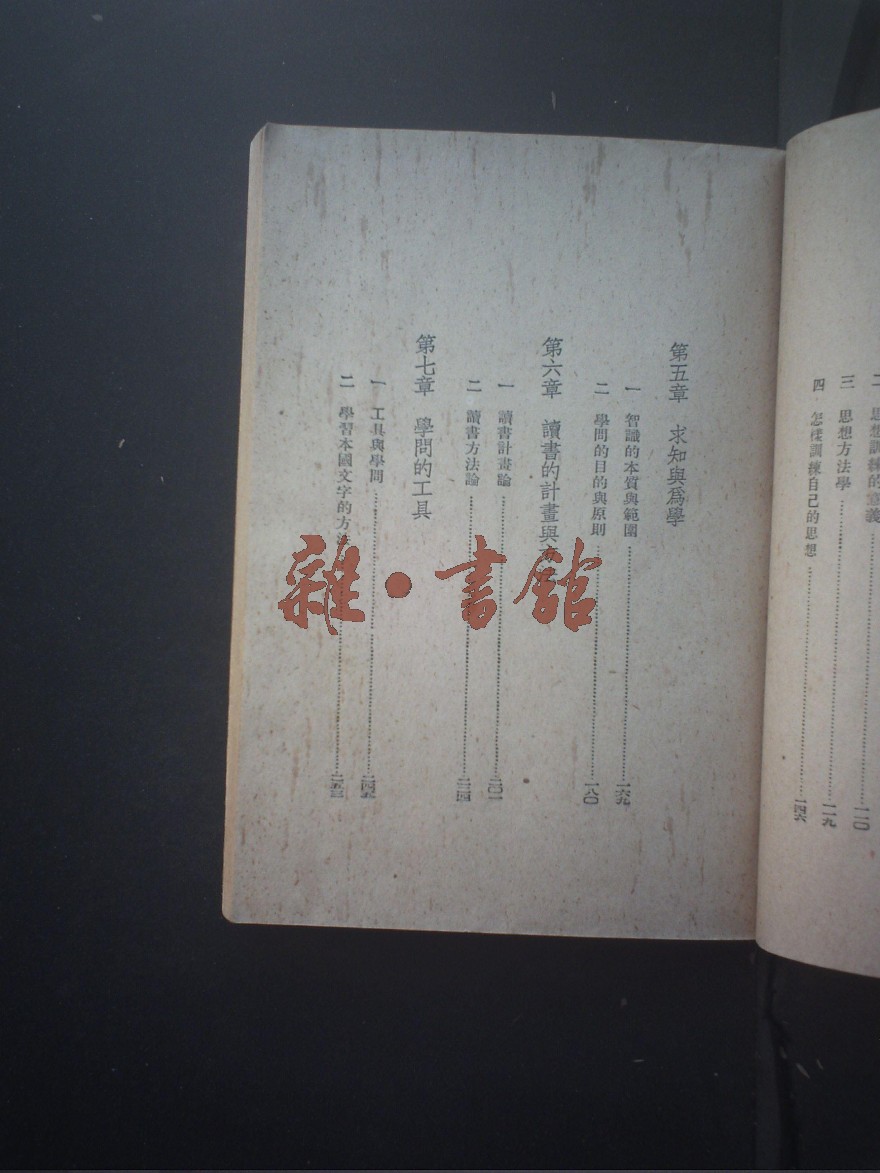 二 思想訓練的意義 一一〇
三 思想方法學 一一九
四 怎樣訓練自己的思想 一四六
第五章 求知與爲學
一 智識的本質與範圍 一六九
二 學問的目的與原則 一八〇
第六章 讀書的計畫與方
一 讀書計畫論 二〇一
二 讀書方法論 二二四
第七章 學問的工具
一 工具與學問 二四五
二 學習本國文字的方法 二五三
雜·書館